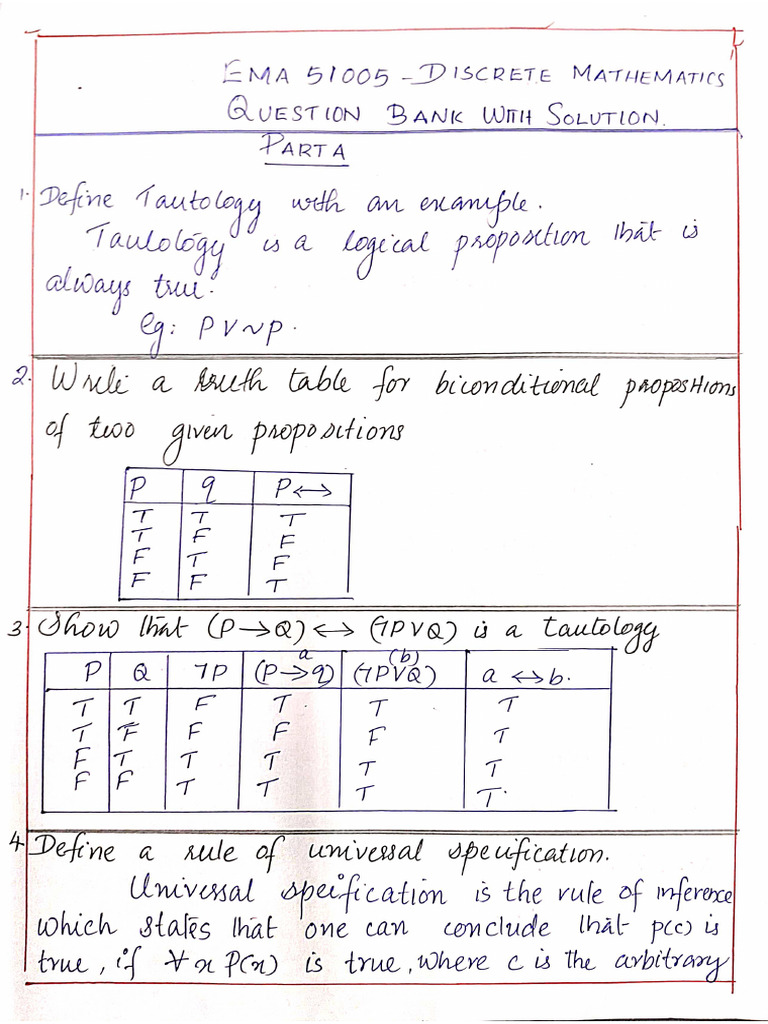 EMA 51005 - DISCRETE MATHEMATICS
QUESTION BANK WITH SOLUTION.
PART A
1. Define Tautology with an example.
Tautology is a logical proposition that is
always true.
Eg: P V ~ P.
2. Write a truth table for biconditional propositions
of two given propositions
P q P ↔
T T T
T F F
F T F
F F T
3. Show that (P → Q) ↔ (¬P V Q) is a tautology
P Q ¬P (P → q) a (¬P V Q) (b) a ↔ b.
T T F T T T
T F F F F T
F T T T T T
F F T T T T
4. Define a rule of universal specification.
Universal specification is the rule of inference
which states that one can conclude that p(c) is
true, if ∀x P(x) is true, where c is the arbitrary